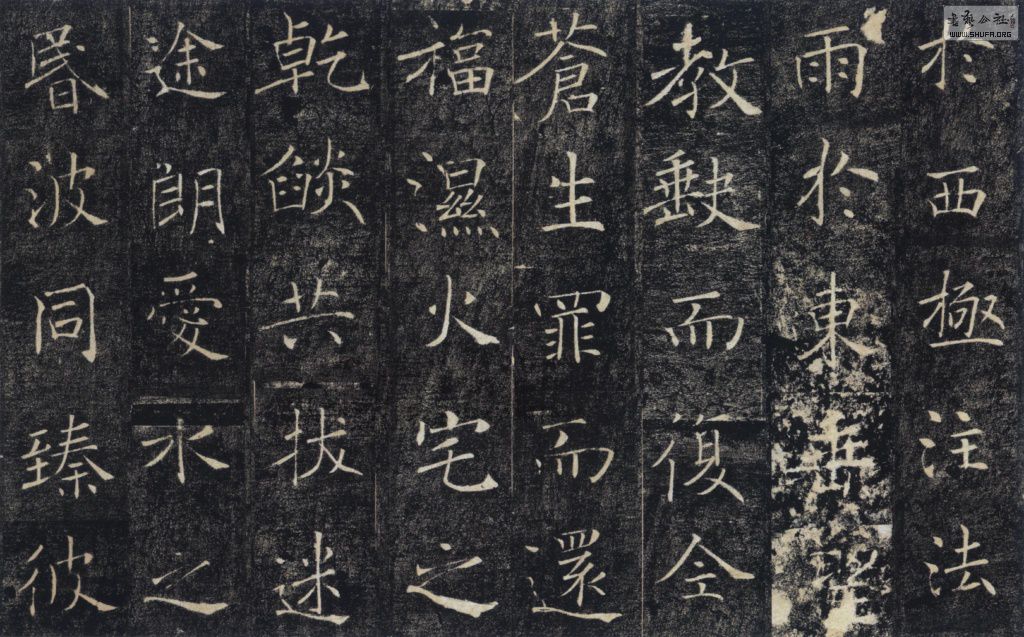 於西極注法
雨於東垂聖
教𡙇而復全
蒼生罪而還
福濕火宅之
乾燄共拔迷
途朗愛水之
昬波同臻彼
書藝公社
WWW.SHUFA.ORG